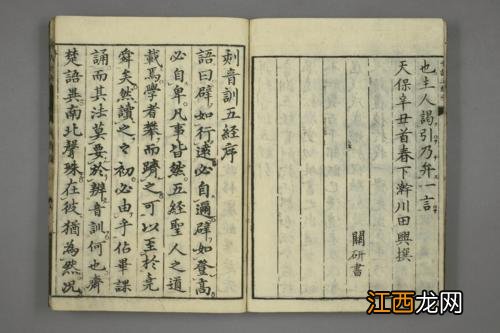 也主人謁引乃弁一言
天保辛丑首春下澣川田興撰
關研書
刻音訓五經序
語曰辟如行遠必自邇辟如登高
必自卑凡事皆然五經聖人之道
載焉學者攀而躋之可以至於堯
舜矣然讀之々初必由乎佔畢課
誦而其法莫要於辨音訓何也齊
楚語異南北聲殊在彼猶為然況
江西龙网